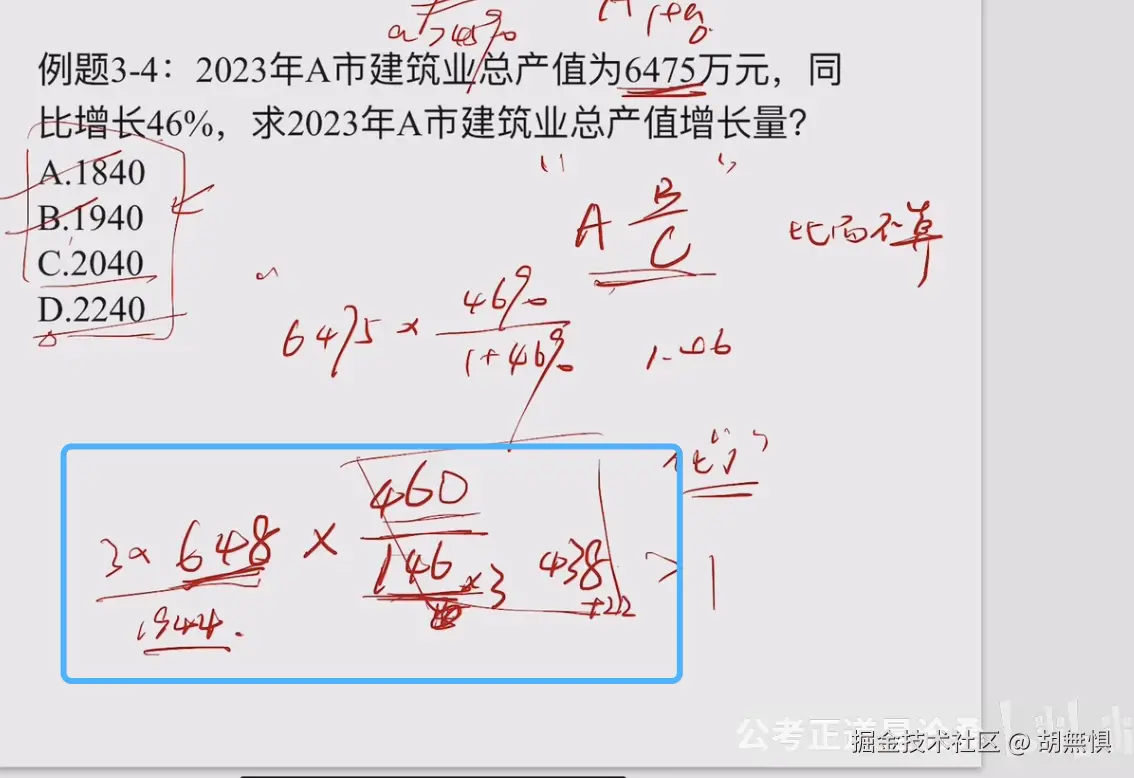 a>45%
A 1+a
例题3-4：2023年A市建筑业总产值为6475万元，同
比增长46%，求2023年A市建筑业总产值增长量？
A.1840
B.1940
C.2040
D.2240
A B/C
6475 × 46%/1+46%
1.46
3× 648 × 460/146×3 438 > 1
+22
1944.
公考正道
掘金技术社区 @ 胡無惧